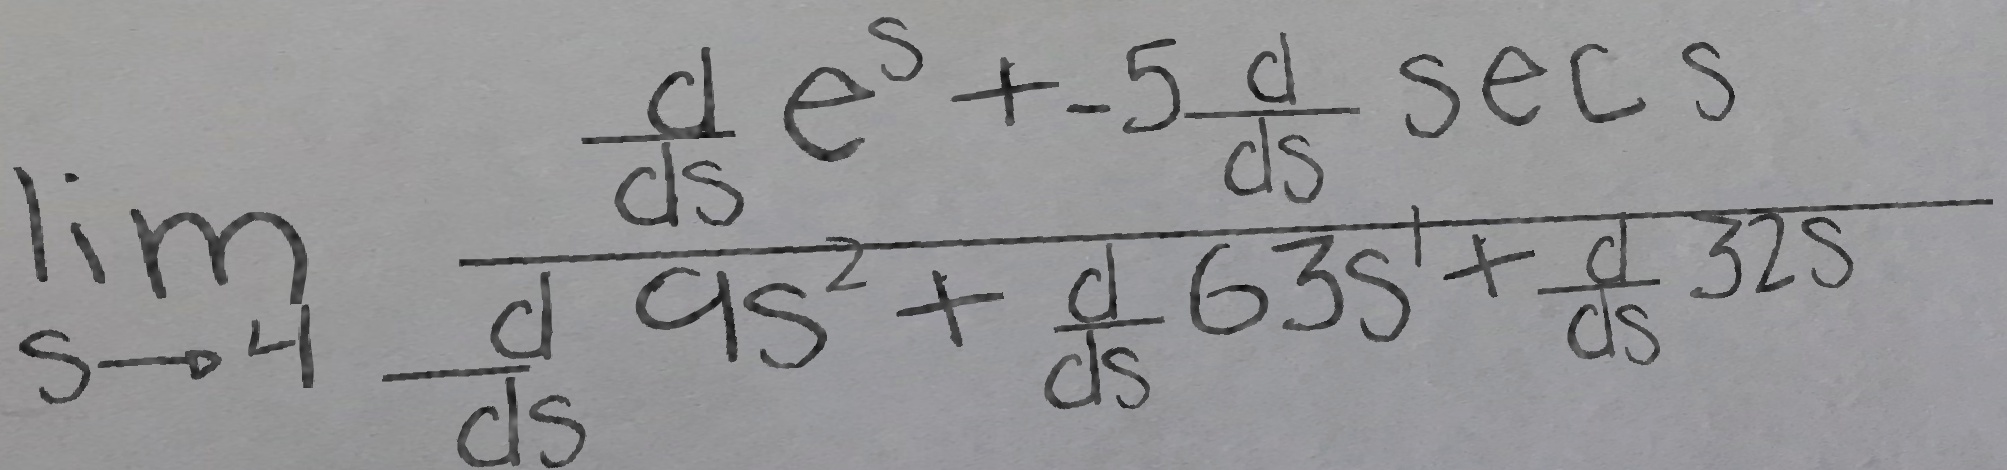 \lim_{s \to 4} \frac{\frac{d}{ds} e^{s} + -5 \frac{d}{ds} \sec s}{\frac{d}{ds} 9s^{2} + \frac{d}{ds} 63s^{1} + \frac{d}{ds} 32s}